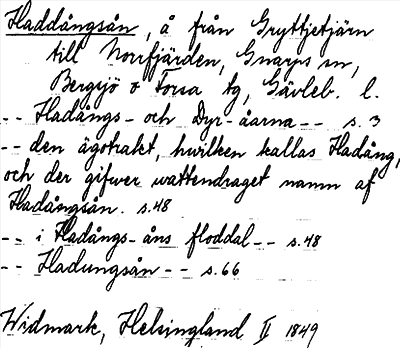 Haddångsån, å från Gryttjetjärn
till Norrfjärden, Gnarps sn,
Bergsjö o Forsa tg, Gävleb. l.
-- Hadångs- och Dyr-åarna -- s. 3
-- den ägotrakt, hwilken kallas Hadång,
och der gifwer wattendraget namn af
Hadångsån. s.48
-- i Hadångs-åns floddal -- s.48
-- Hadungsån -- s.66
Widmark, Helsingland II 1849